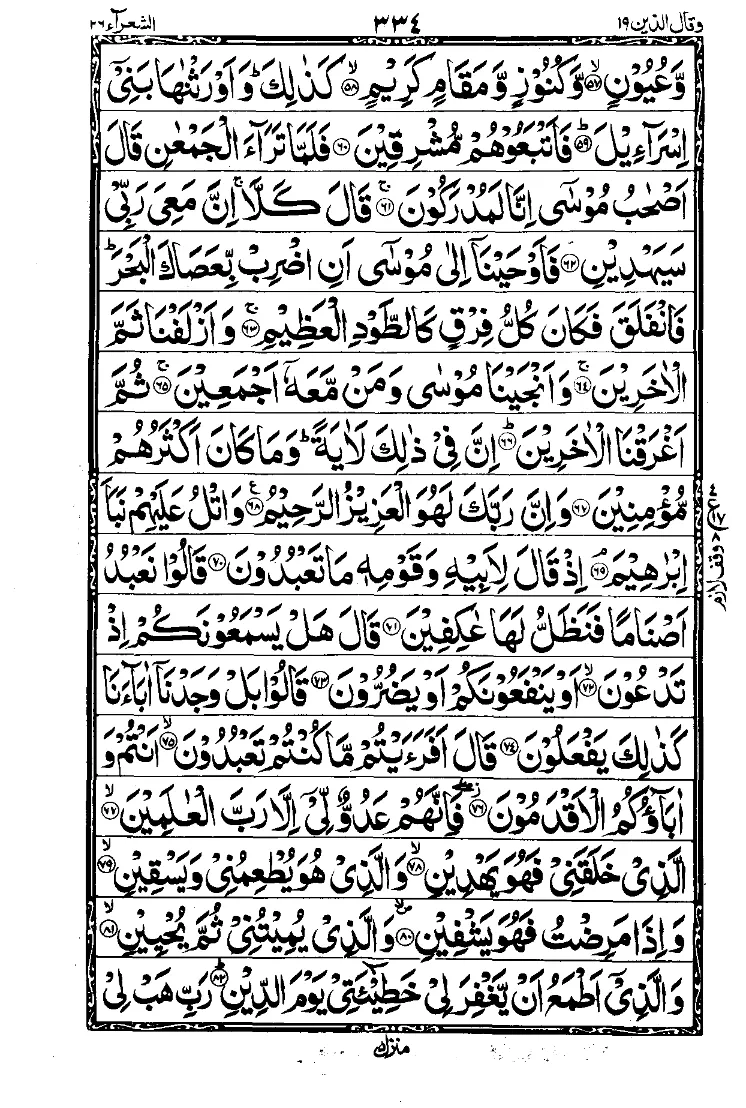 وقال الذين ١٩ ٣٣٤ الشعرآء ٢٦
وَّعُيُوۡنٍ ۙ‏﴿۵۷﴾ وَّكُنُوۡزٍ وَّمَقَامٍ كَرِيۡمٍ ۙ‏﴿۵۸﴾ كَذٰلِكَ ؕ وَاَوۡرَثۡنٰهَا بَنِىۡۤ
اِسۡرَآءِيۡلَ ؕ‏﴿۵۹﴾ فَاَتۡبَعُوۡهُمۡ مُّشۡرِقِيۡنَ‏﴿۶۰﴾ فَلَمَّا تَرَآءَ الۡجَمۡعٰنِ قَالَ
اَصۡحٰبُ مُوۡسٰٓى اِنَّا لَمُدۡرَكُوۡنَ ۚ‏﴿۶۱﴾ قَالَ كَلَّا ۚ اِنَّ مَعِىَ رَبِّىۡ
سَيَهۡدِيۡنِ‏﴿۶۲﴾ فَاَوۡحَيۡنَاۤ اِلٰى مُوۡسٰٓى اَنِ اضۡرِبْ بِّعَصَاكَ الۡبَحۡرَ ؕ
فَانْفَلَقَ فَكَانَ كُلُّ فِرۡقٍ كَالطَّوۡدِ الۡعَظِيۡمِ ۚ‏﴿۶۳﴾ وَاَزۡلَفۡنَا ثَمَّ
الۡاٰخَرِيۡنَ ۚ‏﴿۶۴﴾ وَاَنۡجَيۡنَا مُوۡسٰى وَمَنۡ مَّعَهٗۤ اَجۡمَعِيۡنَ ۚ‏﴿۶۵﴾ ثُمَّ
اَغۡرَقۡنَا الۡاٰخَرِيۡنَ ؕ‏﴿۶۶﴾ اِنَّ فِىۡ ذٰلِكَ لَاٰيَةً ؕ وَمَا كَانَ اَكۡثَرُهُمۡ
مُّؤۡمِنِيۡنَ‏﴿۶۷﴾ وَاِنَّ رَبَّكَ لَهُوَ الۡعَزِيۡزُ الرَّحِيۡمُ ‏﴿۶۸﴾ وَاتۡلُ عَلَيۡهِمۡ نَبَاَ
اِبۡرٰهِيۡمَ ۘ‏﴿۶۹﴾ اِذۡ قَالَ لِاَبِيۡهِ وَقَوۡمِهٖ مَا تَعۡبُدُوۡنَ‏﴿۷۰﴾ قَالُوۡا نَعۡبُدُ
اَصۡنَامًا فَنَظَلُّ لَهَا عٰكِفِيۡنَ‏﴿۷۱﴾ قَالَ هَلۡ يَسۡمَعُوۡنَكُمۡ اِذۡ
تَدۡعُوۡنَ ۙ‏﴿۷۲﴾ اَوۡ يَنۡفَعُوۡنَكُمۡ اَوۡ يَضُرُّوۡنَ‏﴿۷۳﴾ قَالُوۡا بَلۡ وَجَدۡنَاۤ اٰبَآءَنَا
كَذٰلِكَ يَفۡعَلُوۡنَ‏﴿۷۴﴾ قَالَ اَفَرَءَيۡتُمۡ مَّا كُنۡتُمۡ تَعۡبُدُوۡنَ ۙ‏﴿۷۵﴾ اَنۡتُمۡ وَ
اٰبَآؤُكُمُ الۡاَقۡدَمُوۡنَ ۖ‏﴿۷۶﴾ فَاِنَّهُمۡ عَدُوٌّ لِّىۡۤ اِلَّا رَبَّ الۡعٰلَمِيۡنَ ۙ‏﴿۷۷﴾
الَّذِىۡ خَلَقَنِىۡ فَهُوَ يَهۡدِيۡنِ ۙ‏﴿۷۸﴾ وَالَّذِىۡ هُوَ يُطۡعِمُنِىۡ وَيَسۡقِيۡنِ ۙ‏﴿۷۹﴾
وَاِذَا مَرِضۡتُ فَهُوَ يَشۡفِيۡنِ‏﴿۸۰﴾ وَالَّذِىۡ يُمِيۡتُنِىۡ ثُمَّ يُحۡيِيۡنِ ۙ‏﴿۸۱﴾
وَالَّذِىۡۤ اَطۡمَعُ اَنۡ يَّغۡفِرَ لِىۡ خَطِيۡٓئَتِىۡ يَوۡمَ الدِّيۡنِ ؕ‏﴿۸۲﴾ رَبِّ هَبۡ لِىۡ
وقف لازم